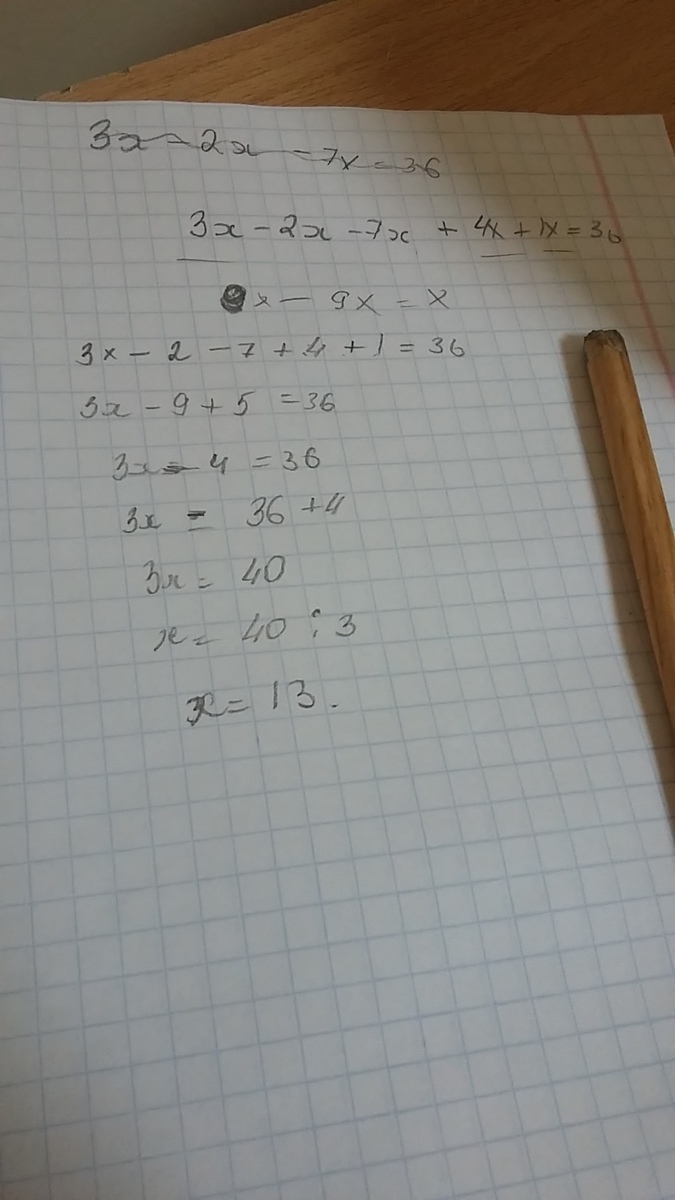 3x - 2x - 7x = 36
3x - 2x - 7x + 4x + 1x = 36
x - 9x = x
3x - 2 - 7 + 4 + 1 = 36
3x - 9 + 5 = 36
3x - 4 = 36
3x = 36 + 4
3x = 40
x = 40 : 3
x = 13.